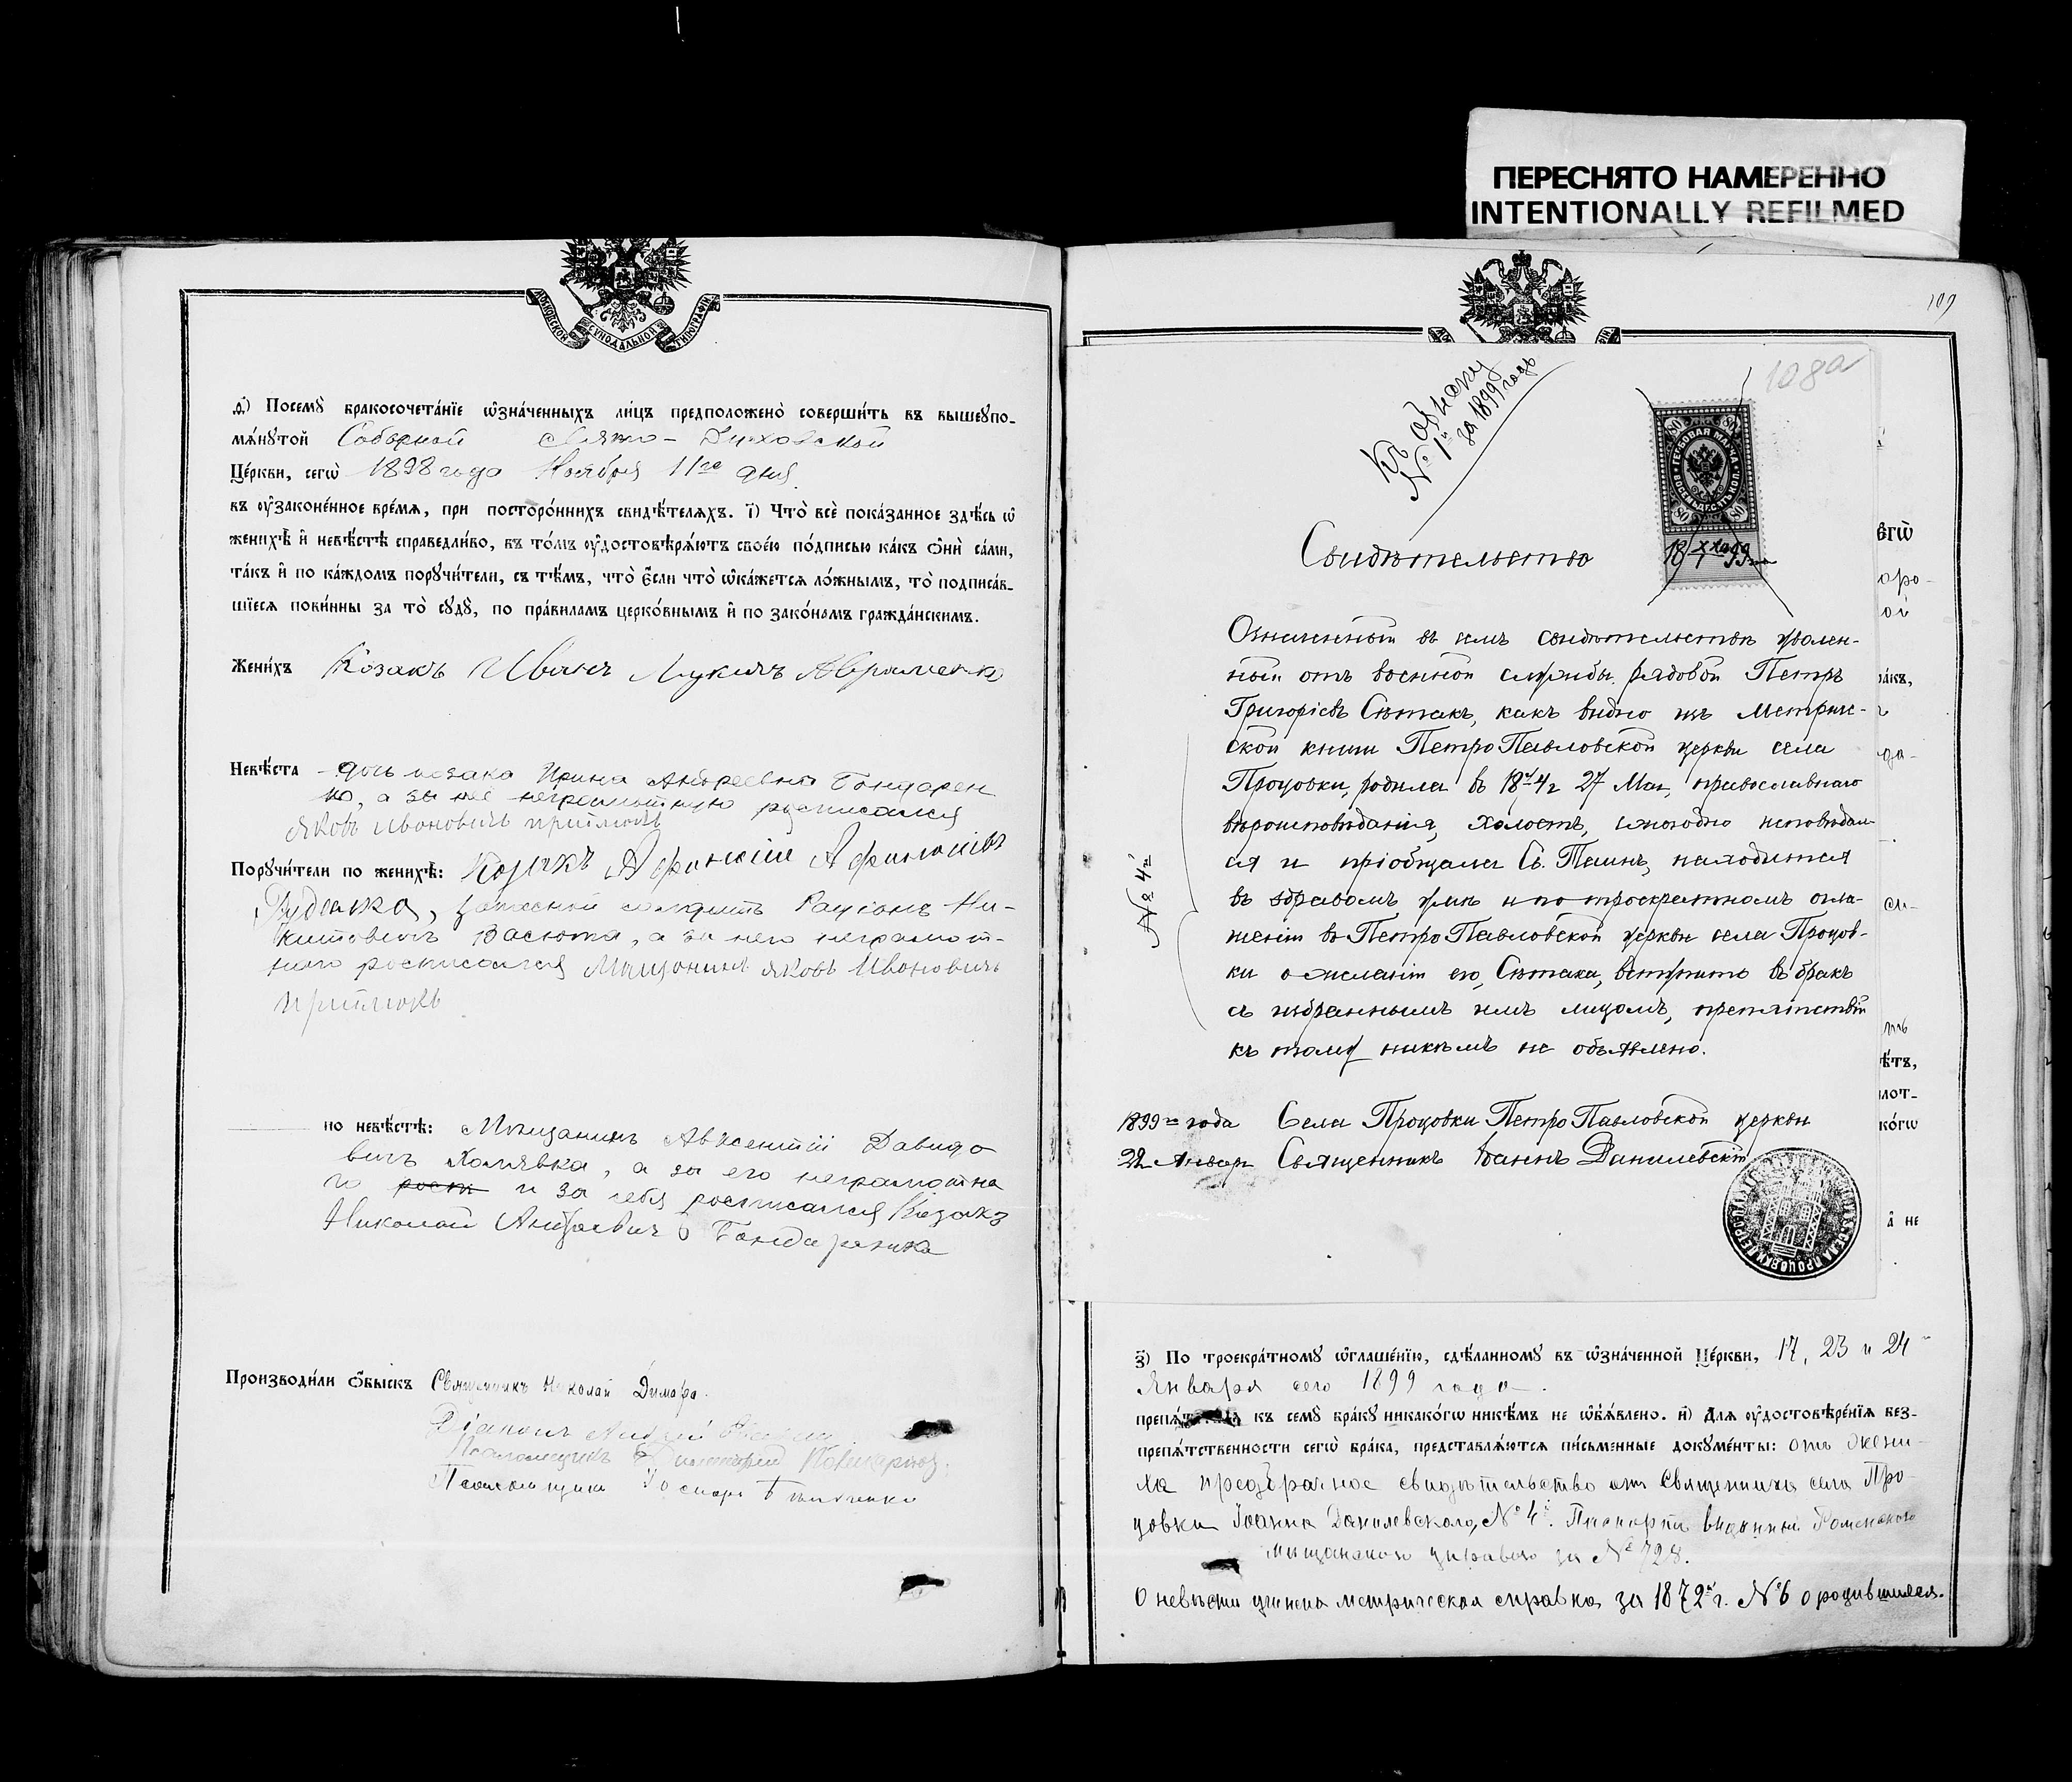 ПЕРЕСНЯТО НАМЕРЕННО
INTENTIONALLY REFILMED
МОСКОВСКОЙ СѴНОДАЛЬНОЙ ТИПОГРАФІИ
Посемꙋ̀ бракосочета́нїе ѡ҆зна́ченныхъ ли́цъ предположено̀ соверши́ть въ вышеꙋпо-
мѧ́нꙋтой Соборной Свято-Духовской
Це́ркви, сегѡ̀ 1898 года Ноября 11го дня
въ ᲂу҆законе́нное вре́мѧ, при посторо́ннихъ свидѣ́телѧхъ. і҃) Что̀ всѐ пока́занное здѣ́сь ѡ҆
женихѣ̀ и҆ невѣ́стѣ справедли́во, въ то́мъ ᲂу҆достовѣрѧ́ютъ свое́ю по́дписью ка́къ ѻ҆нѝ са́ми,
та́къ и҆ по ка́ждомъ порꙋчи́тели, съ тѣ́мъ, что̀ є҆́сли что̀ ѡ҆ка́жетсѧ ло́жнымъ, то̀ подписа́в-
шїесѧ пови́нны за то̀ сꙋдꙋ̀, по пра́виламъ церко́внымъ и҆ по зако́намъ гражда́нскимъ.
Жени́хъ Козакъ Иванъ Лукичъ Авраменко
Невѣ́ста - дочь козака Ирина Андреевна Бондарен
ко, а за нее неграмотную росписался
Яковъ Ивановичъ Приймакъ
Порꙋчи́тели по женихѣ̀: Козакъ Афанасій Афанасіевъ
Руденко, запасной солдатъ Родіонъ Ни-
китовичъ Васюта, а за него неграмот-
наго росписался Мѣщанинъ Яковъ Ивановичъ
Приймакъ
по невѣ́стѣ: Мѣщанинъ Авксентій Давидо
вичъ Халявка, а за его неграмотна
го и за себя росписался Козакъ
Николай Андреевичъ Бондаренко
Производи́ли ѻ҆́быскъ Священникъ Николай Димара.
Діаконъ Андрей
Псаломщикъ Димитрій
Псаломщикъ
109
108а
Къ обыску
№ 1й за 1899 годъ
ГЕРБОВАЯ МАРКА ВОСЕМЬДЕСЯТЪ КОП.
80 80
80 80
Свидѣтельство
Означенный въ семъ свидѣтельствѣ уволен-
ный отъ военной службы рядовой Петръ
Григоріевъ Сѣтакъ, какъ видно изъ Метриче-
ской книги Петро Павловской церкви села
Процовки, родился въ 1874 г 27 Мая, православнаго
вѣроисповѣданія, холостъ, ежегодно исповѣдал-
ся и пріобщался Св. Таинъ, находится
въ здравомъ умѣ и по троекратномъ огла-
шеніи въ Петро Павловской церкви села Процов-
ки о желаніи его, Сѣтака, вступить въ бракъ
съ избраннымъ имъ лицомъ, препятствій
къ тому никѣмъ не объявлено.
№ 4й
1899го года Села Процовки Петро Павловской церкви
22 Января Священникъ Іоаннъ Данилевскій
з҃) По троекра́тномꙋ ѡ҆глаше́нїю, сдѣ́ланномꙋ въ ѡ҆зна́ченной Це́ркви, 17, 23 и 24
Января сего 1899 года.
къ семꙋ̀ бра́кꙋ никако́гѡ никѣ́мъ не ѡ҆б̾ѧ́влено. и҃) Для ᲂу҆достовѣре́нїѧ без-
препѧ́тственности сегѡ̀ бра́ка, представлѧ́ютсѧ пи́сьменные докꙋме́нты: отъ жени-
ха предбрачное свидѣтельство отъ Священника села Про-
цовки Іоанна Данилевскаго, № 4й. Паспортъ выданный Роменскою
Мѣщанскою управою за № 728.
О невѣстѣ учинена метрическая справка за 1872й г. № 6 о родившихся.